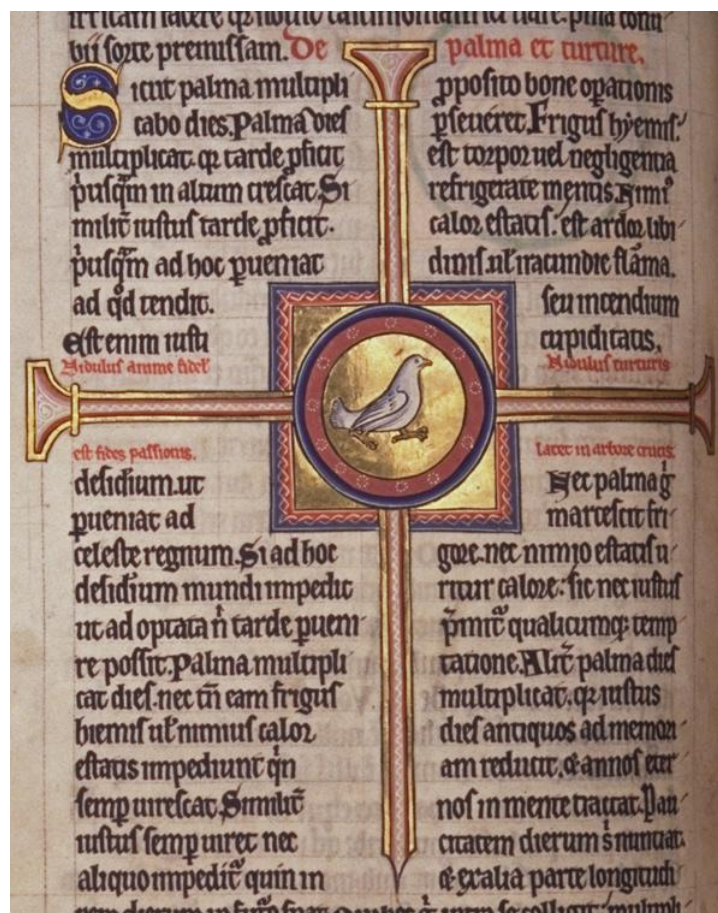 bii sorte premissam. De palma et turture.
Sicut palma multipli
cabo dies. Palma dies
multiplicat. qr tarde ꝓficit
pusq̃m in altum crescat. Si
milit̃ iustus tarde ꝓficit.
pusq̃m ad hoc ꝑueniat
ad qd tendit.
Est enim iusti
Nidulus anime fidel'
est fides passionis.
desidium. ut
ꝑueniat ad
celeste regnum. Si ad hoc
desidium mundi impedit
ut ad optata ñ tarde ꝑueni
re possit. Palma multipli
cat dies. nec tñ eam frigus
hiemis ul' nimius calor
estatis impediunt qn
semp uirescat. Similit̃
iustus semp uiret nec
aliquo impedit̃ quin in
ꝓposito bone opationis
ꝑseueret. Frigus hyemis.
est torpor uel negligentia
refrigerate mentis. Nimi9
calor estatis. est ardor libi
dinis. ul' iracundie flãma.
seu incendium
cupiditatis.
Nidulus turturis
Latet in arbore crucis.
Nec palma g
marcescit fri
gore. nec nimio estatis u
ritur calore: sic nec iustus
p̃mit̃ qualicumq; temp
tatione. Alit̃ palma dies
multiplicat. qr iustus
dies antiquos ad memori
am reducit. & annos eter
nos in mente tractat. Pau
citatem dierum s nuntiat.
& ex alia parte longitudi